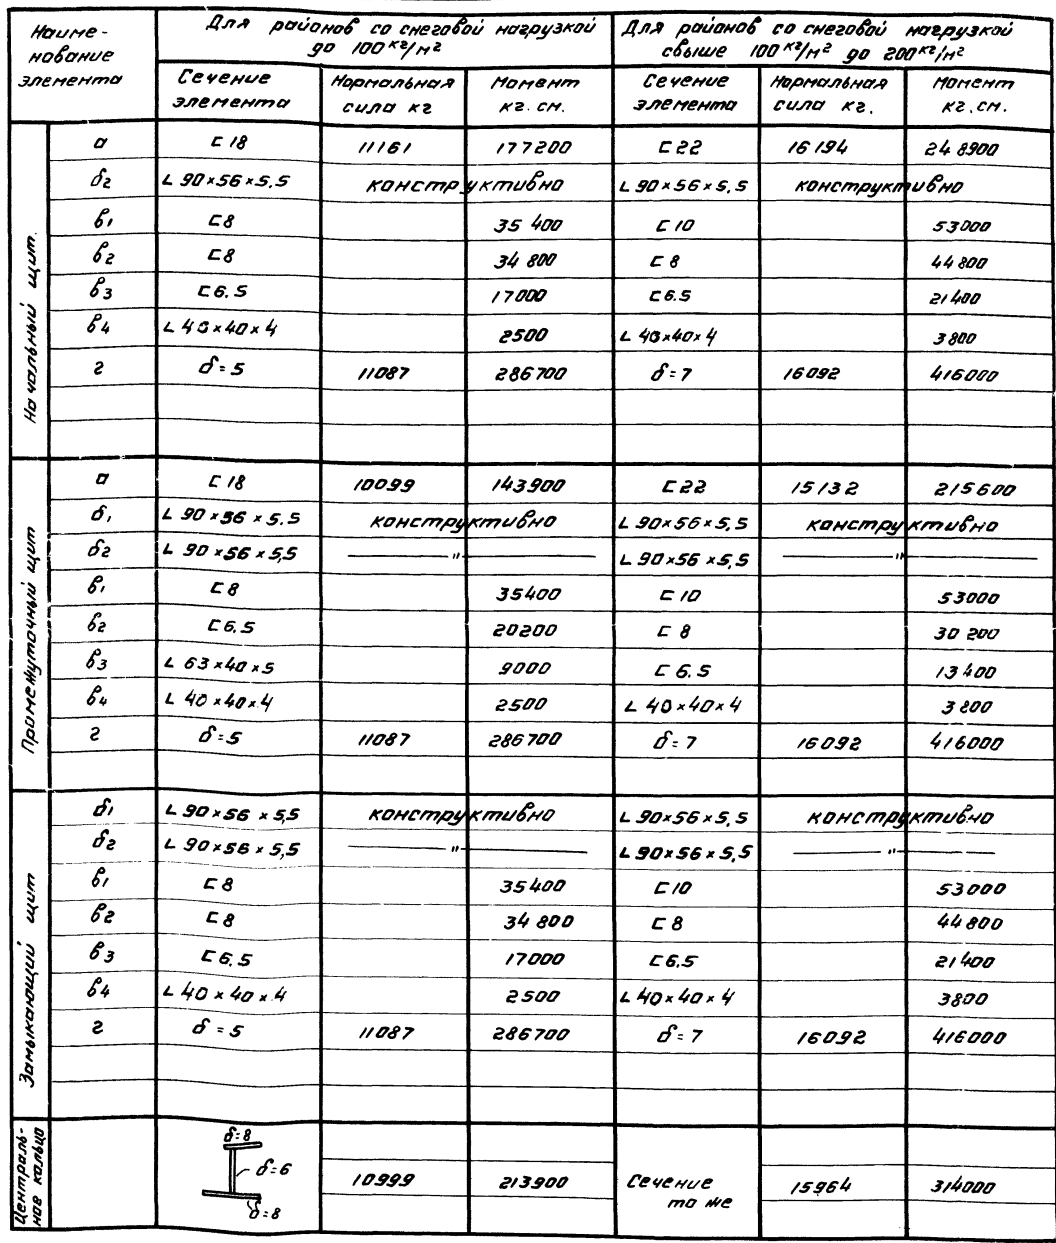 Наиме-
нование
элемента
Для районов со снеговой нагрузкой
до 100 кг/м²
Для районов со снеговой нагрузкой
свыше 100 кг/м² до 200 кг/м²
Сечение
элемента
Нормальная
сила кг
Момент
кг.см.
Сечение
элемента
Нормальная
сила кг.
Момент
кг.см.
Начальный щит.
а ⊏ 18 11161 177200 ⊏ 22 16194 248900
б2 L 90×56×5,5 конструктивно L 90×56×5,5 конструктивно
в1 ⊏ 8 35 400 ⊏ 10 53000
в2 ⊏ 8 34 800 ⊏ 8 44 800
в3 ⊏ 6.5 17000 ⊏ 6.5 21400
в4 L 40×40×4 2500 L 40×40×4 3800
г δ=5 11087 286700 δ=7 16092 416000
Промежуточный щит
а ⊏ 18 10099 143900 ⊏ 22 15132 215600
б1 L 90×56×5,5 конструктивно L 90×56×5,5 конструктивно
б2 L 90×56×5,5 —〃— L 90×56×5,5 —〃—
в1 ⊏ 8 35400 ⊏ 10 53000
в2 ⊏ 6.5 20200 ⊏ 8 30 200
в3 L 63×40×5 9000 ⊏ 6.5 13 400
в4 L 40×40×4 2500 L 40×40×4 3 800
г δ=5 11087 286700 δ=7 16092 416000
Замыкающий щит
б1 L 90×56×5,5 конструктивно L 90×56×5,5 конструктивно
б2 L 90×56×5,5 —〃— L 90×56×5,5 —〃—
в1 ⊏ 8 35400 ⊏ 10 53000
в2 ⊏ 8 34 800 ⊏ 8 44 800
в3 ⊏ 6.5 17000 ⊏ 6.5 21400
в4 L 40×40×4 2500 L 40×40×4 3800
г δ=5 11087 286700 δ=7 16092 416000
Централь-
ное кольцо
δ=8
δ=6
δ=8
10999 213900
Сечение
то же
15964 314000